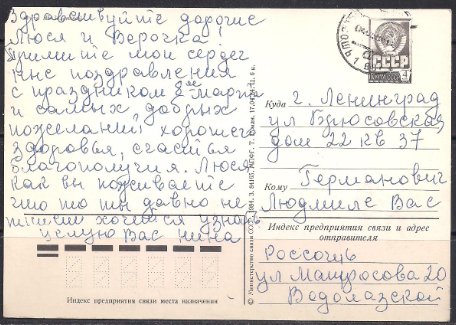 Здравствуйте дорогие
Люся и Верочка!
Примите мои сердеч
ные поздравления
с праздником 8ое марта
и самых добрых
пожеланий, хорошего
здоровья, счастья
благополучия. Люся
как вы поживаете
что то ты давно не
хочется узнать
целую Вас Нина
СССР
Куда г. Ленинград
ул Брюсовская
дом 22 кв 37
Кому Германович
Людмиле Вас
Индекс предприятия связи и адрес
отправителя
Россошь
ул Матросова 20
Водолазской
Индекс предприятия связи места назначения